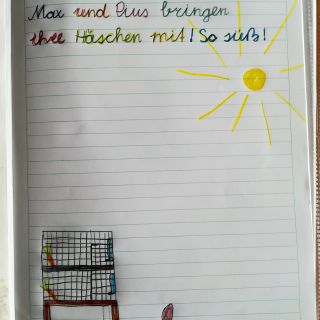 Max und Pius bringen
ihre Häschen mit! So süß!